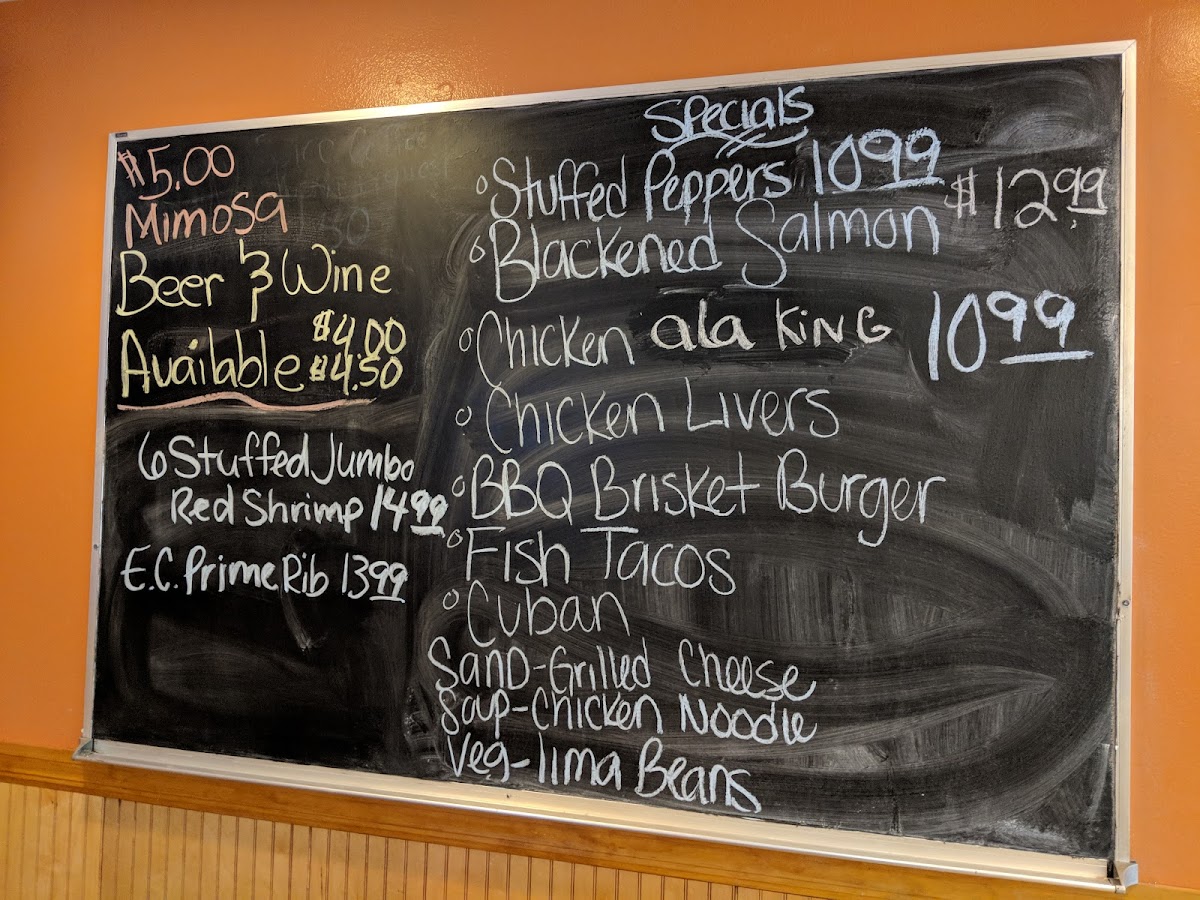 $5.00
Mimosa
Beer & Wine
Available $4.00
$4.50
6 Stuffed Jumbo
Red Shrimp 14.99
E.C. Prime Rib 13.99
Specials
Stuffed Peppers 10.99
Blackened Salmon $12.99
Chicken ala KiNG 10.99
Chicken Livers
BBQ Brisket Burger
Fish Tacos
Cuban
Sand-Grilled Cheese
Soup-Chicken Noodle
Veg-lima Beans